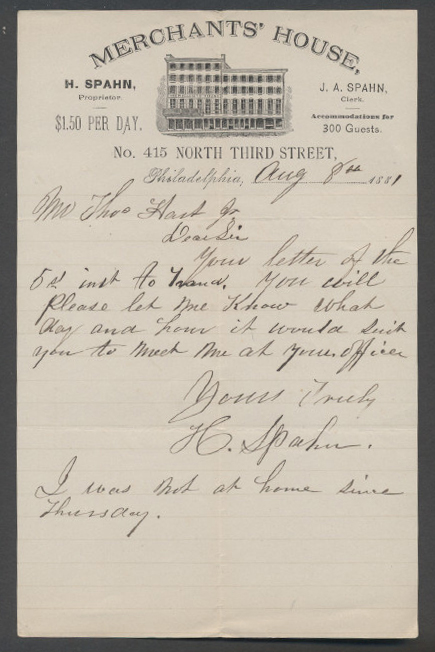 MERCHANTS' HOUSE,
H. SPAHN,
Proprietor.
$1.50 PER DAY.
J. A. SPAHN,
Clerk.
Accommodations for
300 Guests.
No. 415 NORTH THIRD STREET,
Philadelphia, Aug 8th 1881
Mr Thos Hart Jr
Dear Sir
Your letter of the
5d inst to hand. You will
Please let me Know what
day and hour it would suit
you to meet me at your office
Yours Truly
H. Spahn.
I was not at home since
Thursday.